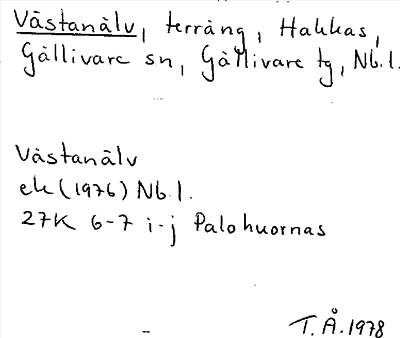 Västanälv, terräng, Hakkas,
Gällivare sn, Gällivare tg, Nb.l.
Västanälv
ek (1976) Nb.l.
27K 6-7 i-j Palohuornas
T.Å.1978